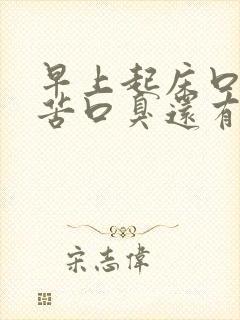 早上起床口
苦口臭還有
宋志偉